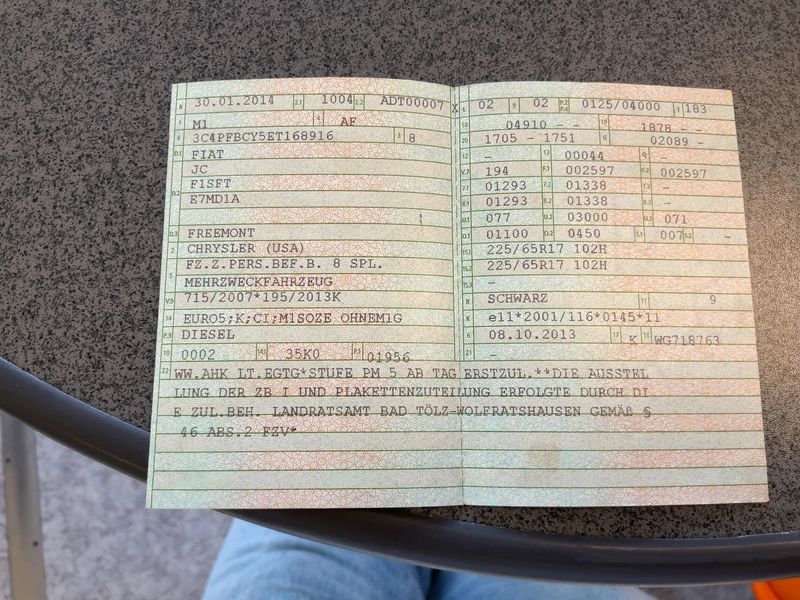 B 30.01.2014 2.1 1004 2.2 ADT00007 X
J M1 4 AF
E 3C4PFBCY5ET168916 3 8
D.1 FIAT
JC
D.2 F1SFT
E7MD1A
D.3 FREEMONT
2 CHRYSLER (USA)
5 FZ.Z.PERS.BEF.B. 8 SPL.
MEHRZWECKFAHRZEUG
V.9 715/2007*195/2013K
14 EURO5;K;CI;M1SOZE OHNEM1G
P.3 DIESEL
10 0002 14.1 35K0 P.1 01956
L 02 9 02 P.2 P.4 0125/04000 T 183
18 04910 - - 19 1878 - -
20 1705 - 1751 G 02089 -
12 - 13 00044 Q -
V.7 194 F.1 002597 F.2 002597
7.1 01293 7.2 01338 7.3 -
8.1 01293 8.2 01338 8.3 -
U.1 077 U.2 03000 U.3 071
O.1 01100 O.2 0450 S.1 007 S.2 -
15.1 225/65R17 102H
15.2 225/65R17 102H
15.3 -
R SCHWARZ 11 9
K e11*2001/116*0145*11
6 08.10.2013 17 K 16 WG718763
21 -
22 WW.AHK LT.EGTG*STUFE PM 5 AB TAG ERSTZUL.**DIE AUSSTEL
LUNG DER ZB I UND PLAKETTENZUTEILUNG ERFOLGTE DURCH DI
E ZUL.BEH. LANDRATSAMT BAD TÖLZ-WOLFRATSHAUSEN GEMÄß §
46 ABS.2 FZV*